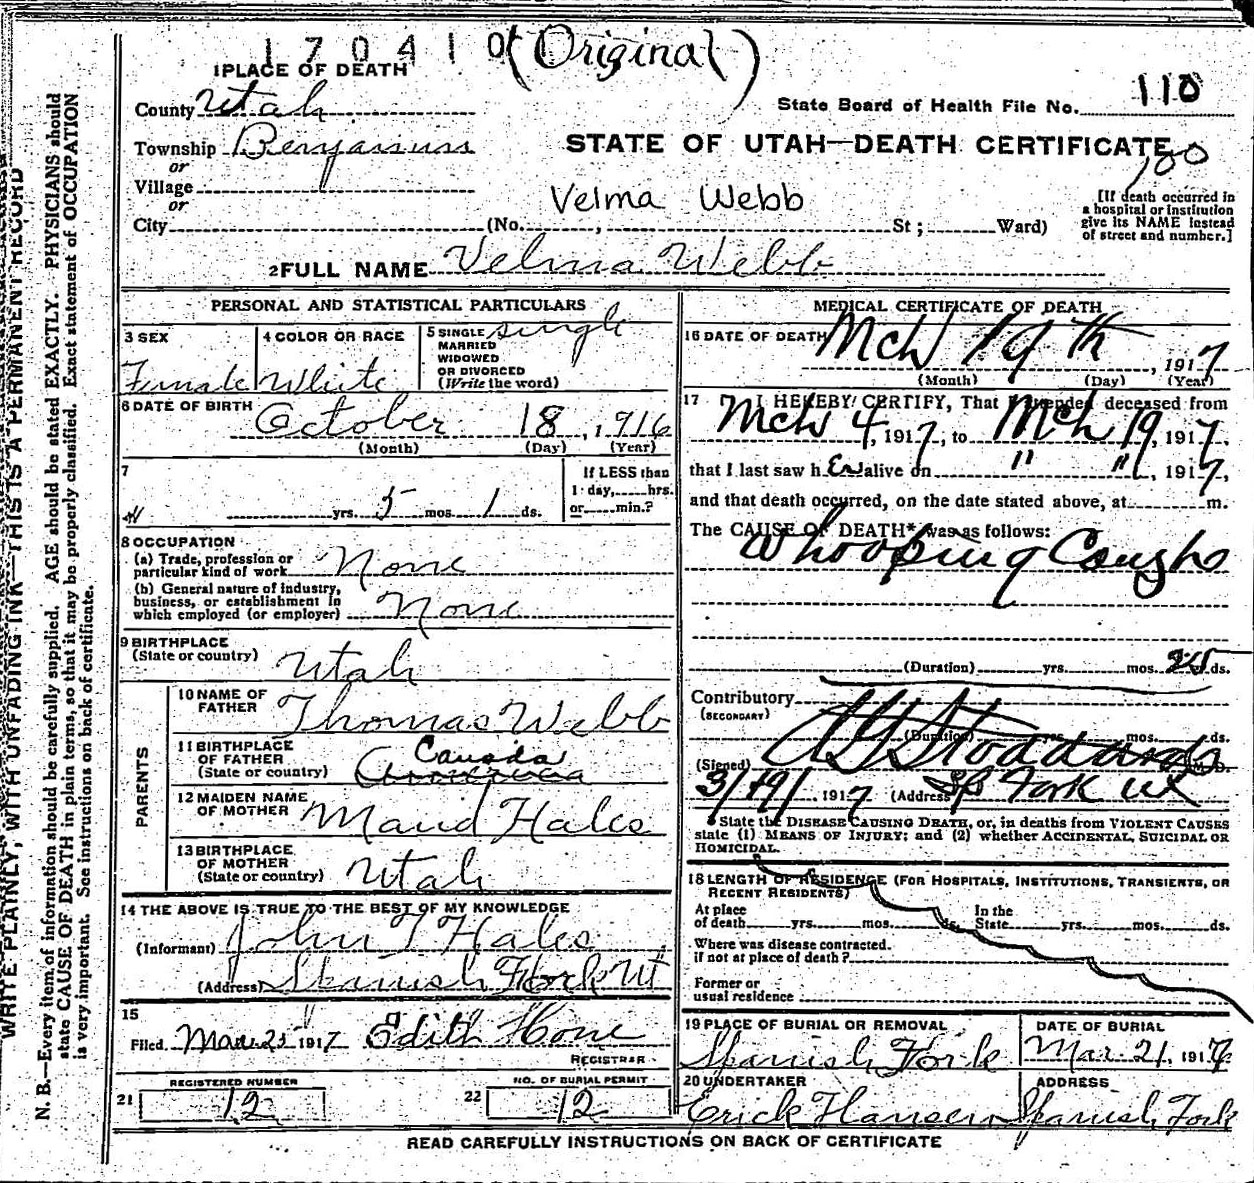 170410 (Original)
1 PLACE OF DEATH
County Utah
State Board of Health File No. 110
Township Benjamin
STATE OF UTAH—DEATH CERTIFICATE
100
or
Village
or
Velma Webb
City (No. , St ; Ward)
[If death occurred in
a hospital or institution
give its NAME instead
of street and number.]
2 FULL NAME Velma Webb
PERSONAL AND STATISTICAL PARTICULARS
3 SEX
Female
4 COLOR OR RACE
White
5 SINGLE single
MARRIED
WIDOWED
OR DIVORCED
(Write the word)
6 DATE OF BIRTH
October 18, 1916
(Month) (Day) (Year)
7
yrs. 5 mos. 1 ds.
If LESS than
1 day, hrs.
or min.?
8 OCCUPATION
(a) Trade, profession or
particular kind of work None
(b) General nature of industry,
business, or establishment in
which employed (or employer) None
9 BIRTHPLACE
(State or country) Utah
PARENTS
10 NAME OF
FATHER Thomas Webb
11 BIRTHPLACE
OF FATHER Canada
(State or country) America
12 MAIDEN NAME
OF MOTHER Maud Hales
13 BIRTHPLACE
OF MOTHER
(State or country) Utah
14 THE ABOVE IS TRUE TO THE BEST OF MY KNOWLEDGE
(Informant) John T Hales
(Address) Spanish Fork Ut
15
Filed Mar. 25 1917 Edith Hone
REGISTRAR
REGISTERED NUMBER
21 12
NO. OF BURIAL PERMIT
22 12
MEDICAL CERTIFICATE OF DEATH
16 DATE OF DEATH Mch 19th, 1917
(Month) (Day) (Year)
17 I HEREBY CERTIFY, That I attended deceased from
Mch 4, 1917, to Mch 19, 1917,
that I last saw h Er alive on " ", 1917,
and that death occurred, on the date stated above, at m.
The CAUSE OF DEATH* was as follows:
Whooping Cough
(Duration) yrs. mos. 25 ds.
Contributory
(SECONDARY)
(Duration) yrs. mos. ds.
(Signed) Stoddard M.D.
3/19/ 1917 (Address Sp Fork Ut
* State the DISEASE CAUSING DEATH, or, in deaths from VIOLENT CAUSES
state (1) MEANS OF INJURY; and (2) whether ACCIDENTAL, SUICIDAL OR
HOMICIDAL.
18 LENGTH OF RESIDENCE (FOR HOSPITALS, INSTITUTIONS, TRANSIENTS, OR
RECENT RESIDENTS)
At place
of death yrs. mos. ds.
In the
State yrs. mos. ds.
Where was disease contracted.
if not at place of death?
Former or
usual residence
19 PLACE OF BURIAL OR REMOVAL
Spanish Fork
DATE OF BURIAL
Mar. 21, 1917
20 UNDERTAKER
Erick Hansen
ADDRESS
Spanish Fork
READ CAREFULLY INSTRUCTIONS ON BACK OF CERTIFICATE
WRITE PLAINLY, WITH UNFADING INK—THIS IS A PERMANENT RECORD
N. B.—Every item of information should be carefully supplied. AGE should be stated EXACTLY. PHYSICIANS should
state CAUSE OF DEATH in plain terms, so that it may be properly classified. Exact statement of OCCUPATION
is very important. See instructions on back of certificate.